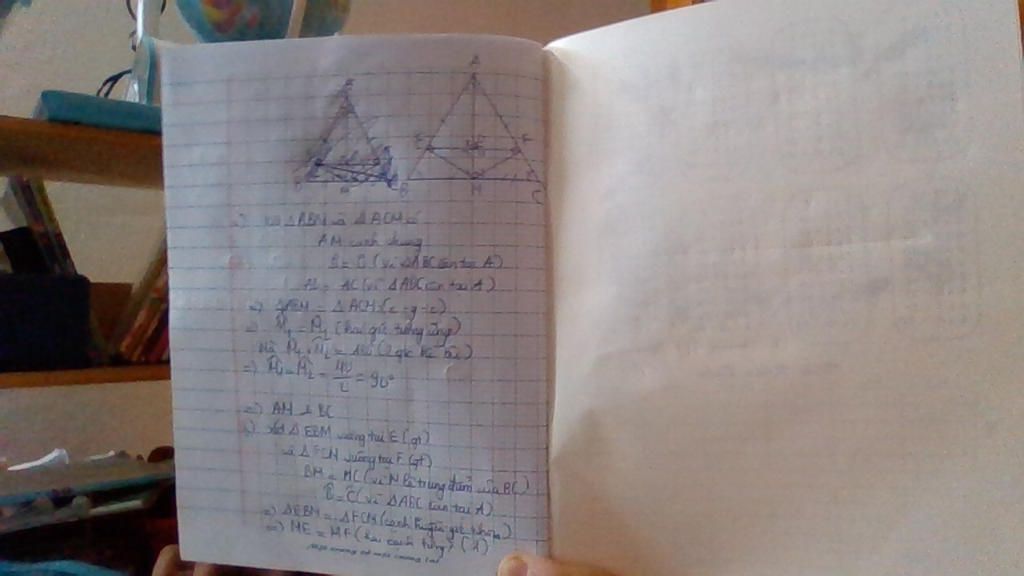 A
E
F
B
M
C
Xét ΔABM và ΔACM có
AM cạnh chung
B̂ = Ĉ (vì ΔABC cân tại A)
AB = AC (vì ΔABC cân tại A)
=) ΔABM = ΔACM (c-g-c)
=) M̂₁ = M̂₂ (hai góc tương ứng)
Mà M̂₁ + M̂₂ = 180 (2 góc kề bù)
=) M̂₁ = M̂₂ = 180/2 = 90°
=) AM ⊥ BC
Xét ΔEBM vuông tại E (gt)
và ΔFCM vuông tại F (gt)
BM = MC (vì M là trung điểm của BC)
B̂ = Ĉ (vì ΔABC cân tại A)
=) ΔEBM = ΔFCM (cạnh huyền góc nhọn)
=) ME = MF (hai cạnh tương ứng) (1)